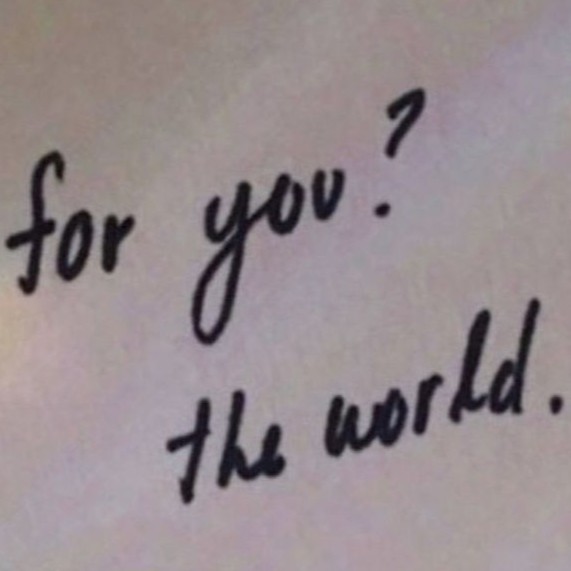 for you?
the world.